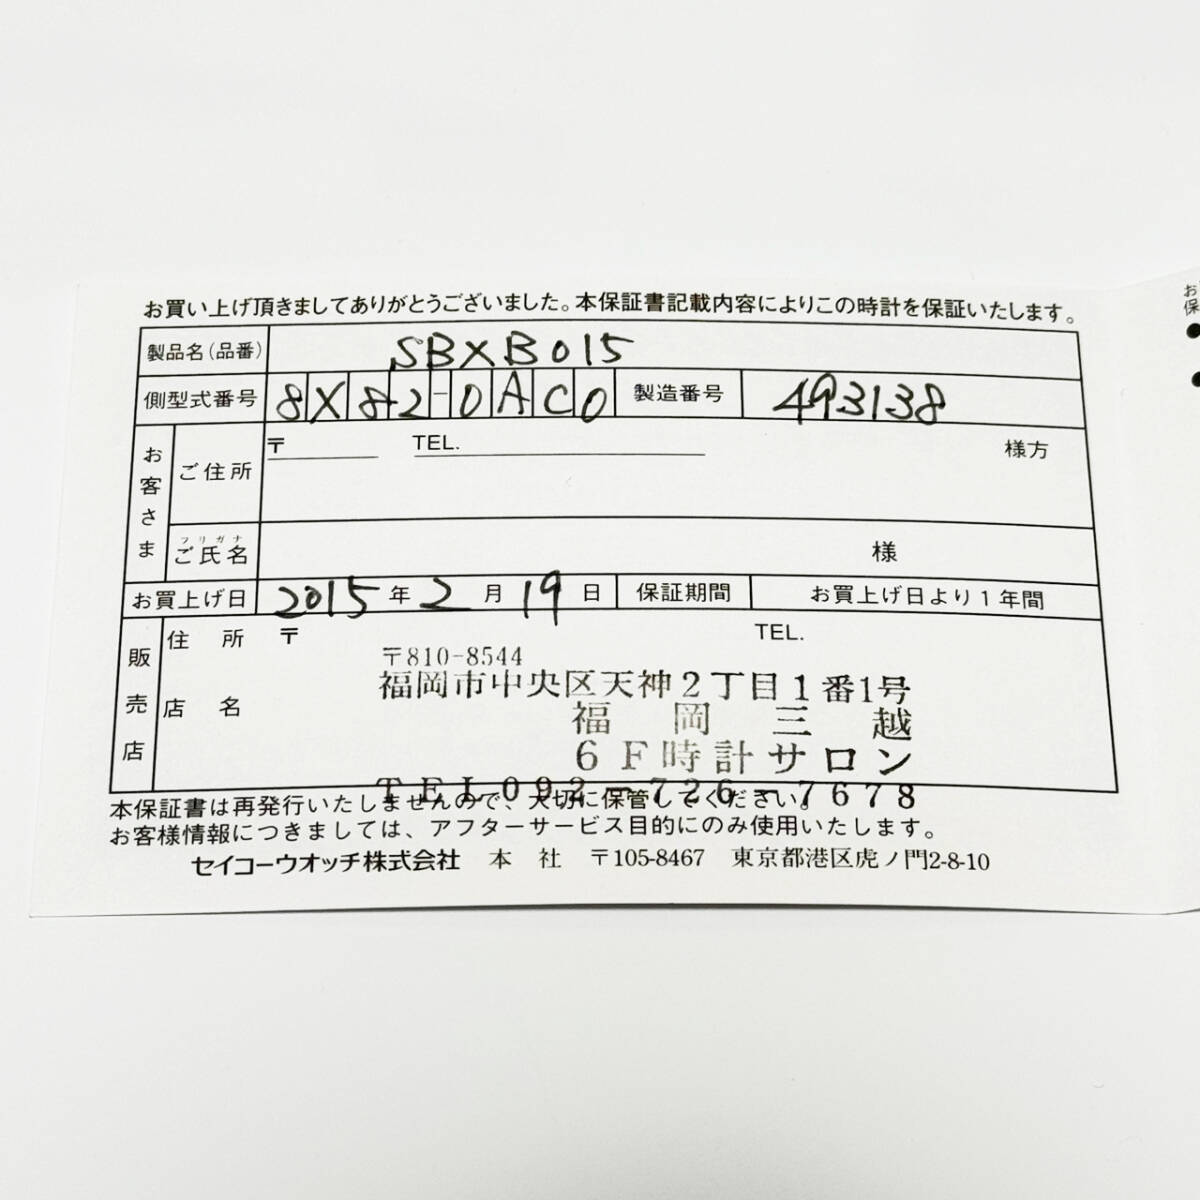 お買い上げ頂きましてありがとうございました。本保証書記載内容によりこの時計を保証いたします。
製品名(品番) SBXB015
側型式番号 8X82-0AC0 製造番号 493138
お客さま
ご住所 〒 TEL. 様方
フリガナ
ご氏名 様
お買上げ日 2015年2月19日 保証期間 お買上げ日より1年間
販売店
住所 〒 TEL.
〒810-8544
福岡市中央区天神2丁目1番1号
店名 福岡三越
6F時計サロン
TEL092-726-7678
本保証書は再発行いたしませんので、大切に保管してください。
お客様情報につきましては、アフターサービス目的にのみ使用いたします。
セイコーウオッチ株式会社 本社 〒105-8467 東京都港区虎ノ門2-8-10
お
保